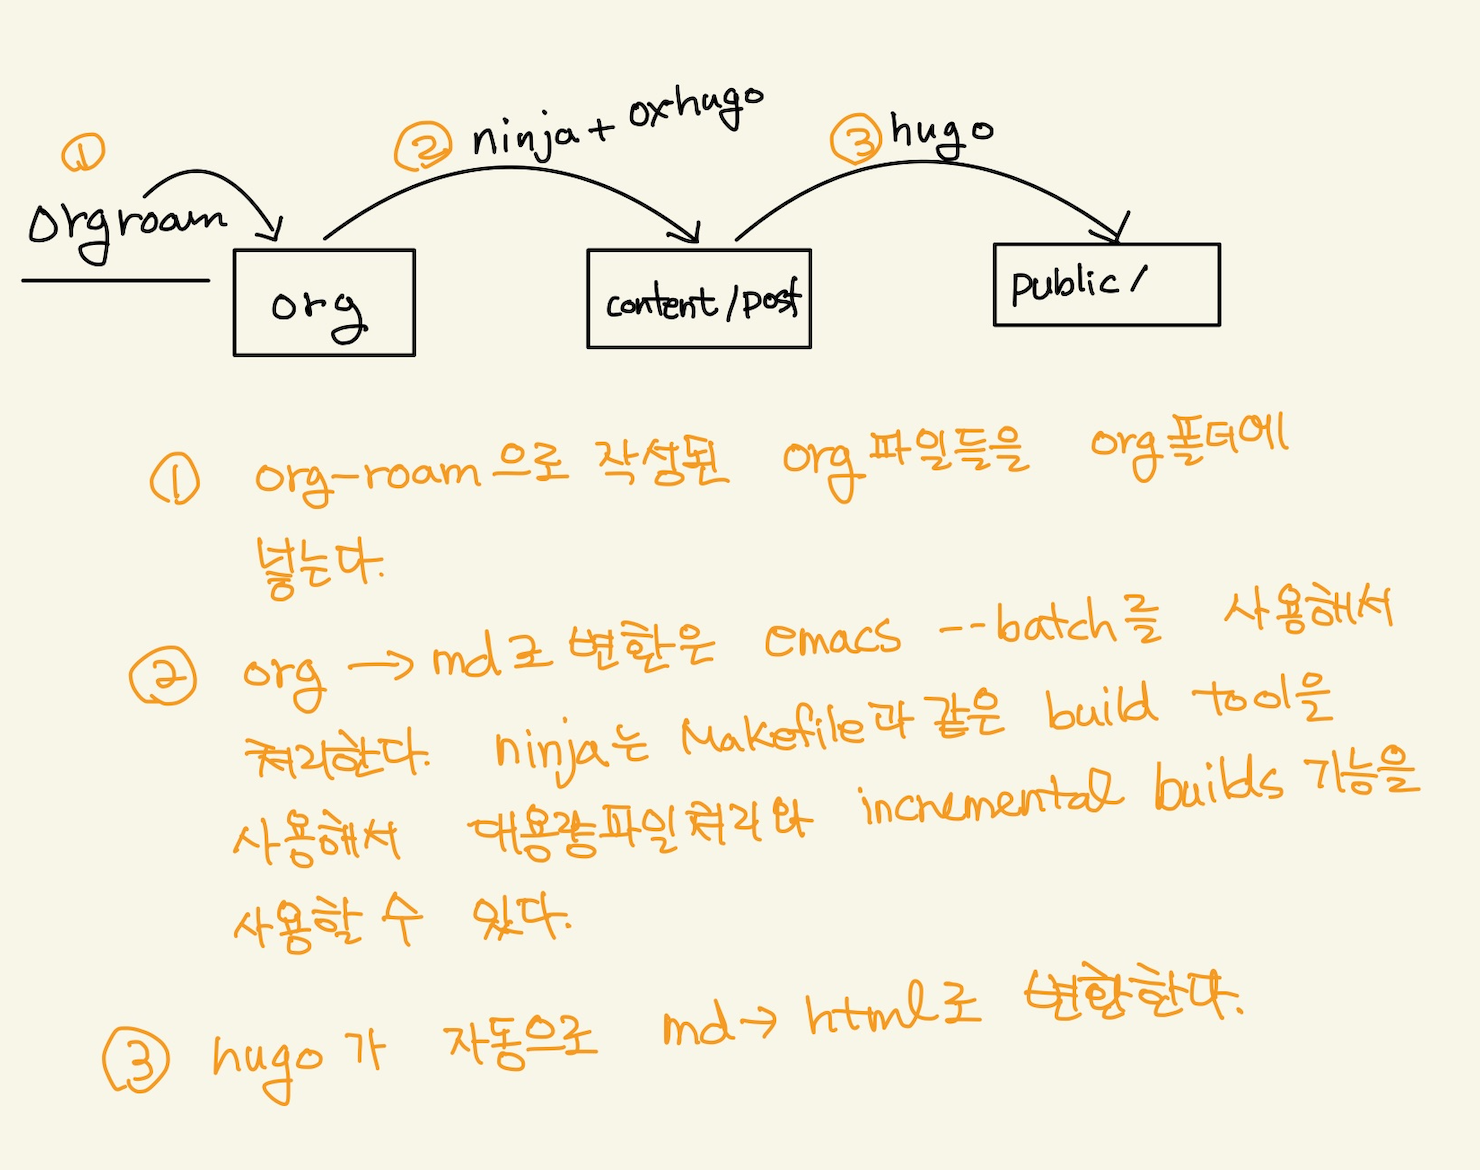 ① ② ninja + ox-hugo ③ hugo
orgroam
org content/post public/
① org-roam으로 작성된 org파일들을 org폴더에
넣는다.
② org → md로 변환은 emacs --batch를 사용해서
처리한다. ninja는 Makefile과 같은 build tool을
사용해서 대용량파일처리와 incremental builds 기능을
사용할 수 있다.
③ hugo가 자동으로 md → html로 변환한다.